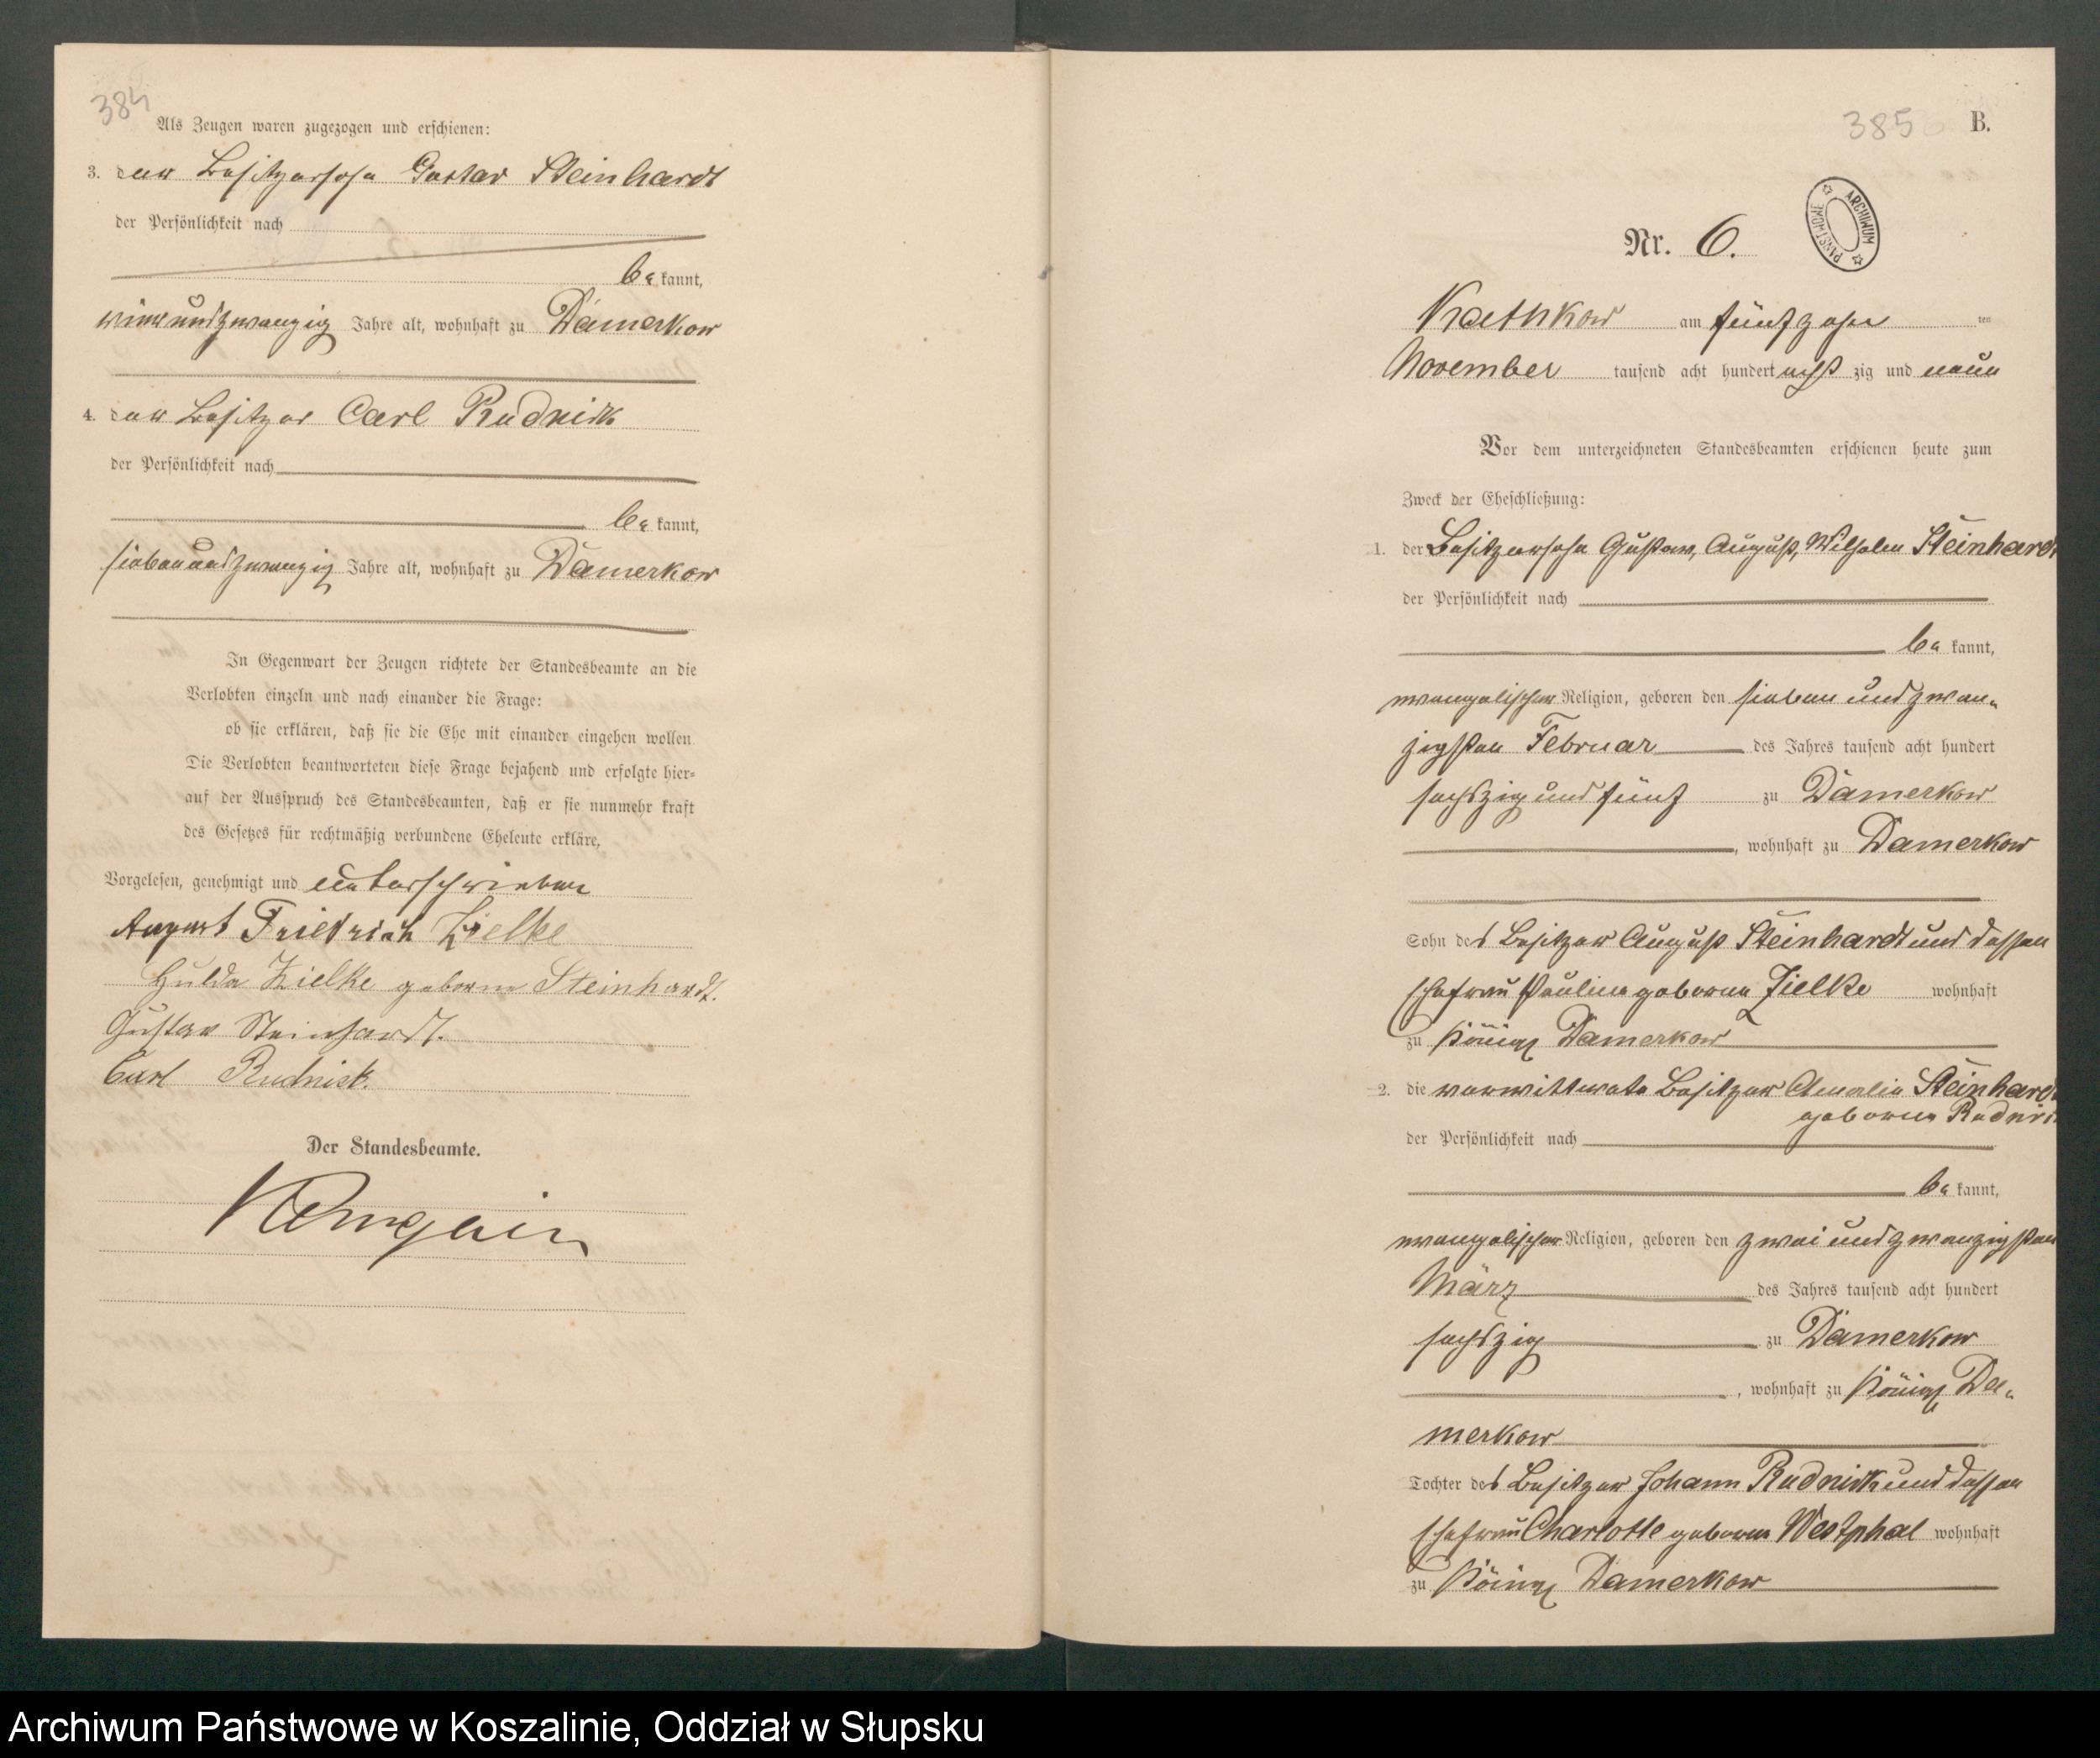 384
Als Zeugen waren zugezogen und erschienen:
3. der Besitzersohn Gustav Steinhardt
der Persönlichkeit nach
be kannt,
vierundzwanzig Jahre alt, wohnhaft zu Damerkow
4. der Besitzer Carl Rudnick
der Persönlichkeit nach
be kannt,
siebenundzwanzig Jahre alt, wohnhaft zu Damerkow
In Gegenwart der Zeugen richtete der Standesbeamte an die
Verlobten einzeln und nach einander die Frage:
ob sie erklären, daß sie die Ehe mit einander eingehen wollen
Die Verlobten beantworteten diese Frage bejahend und erfolgte hier-
auf der Ausspruch des Standesbeamten, daß er sie nunmehr kraft
des Gesetzes für rechtmäßig verbundene Eheleute erkläre,
Vorgelesen, genehmigt und unterschrieben
August Friedrich Zielke
Hulda Zielke geborene Steinhardt.
Gustav Steinhardt.
Carl Rudnick.
Der Standesbeamte.
385 B.
ARCHIWUM PAŃSTWOWE
Nr. 6.
Kathkow am fünfzehn ten
November tausend acht hundert acht zig und neun
Vor dem unterzeichneten Standesbeamten erschienen heute zum
Zweck der Eheschließung:
1. der Besitzersohn Gustav, August, Wilhelm Steinhardt
der Persönlichkeit nach
be kannt,
evangelischer Religion, geboren den sieben und zwan-
zigsten Februar des Jahres tausend acht hundert
sechszig und fünf zu Damerkow
, wohnhaft zu Damerkow
Sohn des Besitzer August Steinhardt und dessen
Ehefrau Pauline geborene Zielke wohnhaft
zu Königl Damerkow
2. die verwittwete Besitzer Amalie Steinhardt
geborene Rudnick
der Persönlichkeit nach
be kannt,
evangelischer Religion, geboren den zwei und zwanzigsten
März des Jahres tausend acht hundert
sechszig zu Damerkow
, wohnhaft zu Königl Da-
merkow
Tochter des Besitzer Johann Rudnick und dessen
Ehefrau Charlotte geborene Westphal wohnhaft
zu Königl Damerkow
Archiwum Państwowe w Koszalinie, Oddział w Słupsku